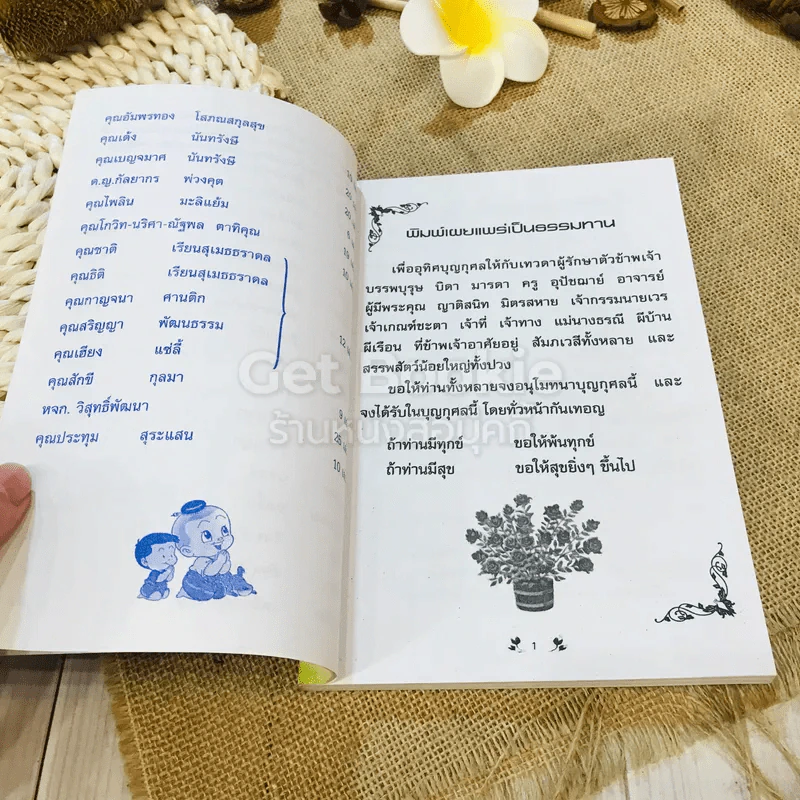 คุณอัมพรทอง โสภณสกุลสุข
คุณเต้ง นันทรังษี
คุณเบญจมาศ นันทรังษี
ด.ญ.กัลยากร พ่วงคุต
คุณไพลิน มะลิแย้ม
คุณโกวิท-นริศา-ณัฐพล ตาทิคุณ
คุณชาติ เรียนสุเมธธราดล
คุณธิติ เรียนสุเมธธราดล
คุณกาญจนา ศานติก
คุณสริญญา พัฒนธรรม
คุณเฮียง แซ่ลี้
คุณสักขี กุลมา
หจก. วิสุทธิ์พัฒนา
คุณประทุม สุระแสน
พิมพ์เผยแพร่เป็นธรรมทาน
เพื่ออุทิศบุญกุศลให้กับเทวดาผู้รักษาตัวข้าพเจ้า
บรรพบุรุษ บิดา มารดา ครู อุปัชฌาย์ อาจารย์
ผู้มีพระคุณ ญาติสนิท มิตรสหาย เจ้ากรรมนายเวร
เจ้าเกณฑ์ชะตา เจ้าที่ เจ้าทาง แม่นางธรณี ผีบ้าน
ผีเรือน ที่ข้าพเจ้าอาศัยอยู่ สัมภเวสีทั้งหลาย และ
สรรพสัตว์น้อยใหญ่ทั้งปวง
ขอให้ท่านทั้งหลายจงอนุโมทนาบุญกุศลนี้ และ
จงได้รับในบุญกุศลนี้ โดยทั่วหน้ากันเทอญ
ถ้าท่านมีทุกข์ ขอให้พ้นทุกข์
ถ้าท่านมีสุข ขอให้สุขยิ่งๆ ขึ้นไป
1
Get Bookie
ร้านหนังสือบุ๊คกี้